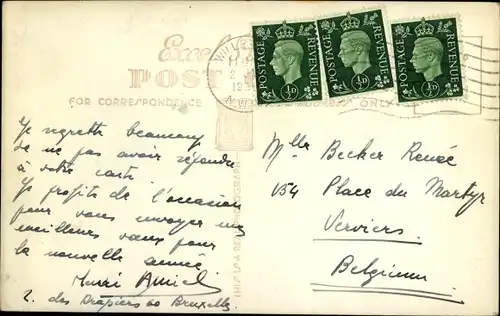 Excel
POST
FOR CORRESPONDENCE
ADDRESS ONLY
WILLES
POSTAGE REVENUE ½D
POSTAGE REVENUE ½D
POSTAGE REVENUE ½D
THIS IS A REAL PHOTOGRAPH
Je regrette beaucoup
de ne pas avoir répondu
à votre carte
Je profite de l'occasion
pour vous envoyer mes
meilleurs vœux pour
la nouvelle année
Henri
2. des Drapiers Bruxelles
Mlle Becker Renée
54 Place du Martyr
Verviers
Belgium